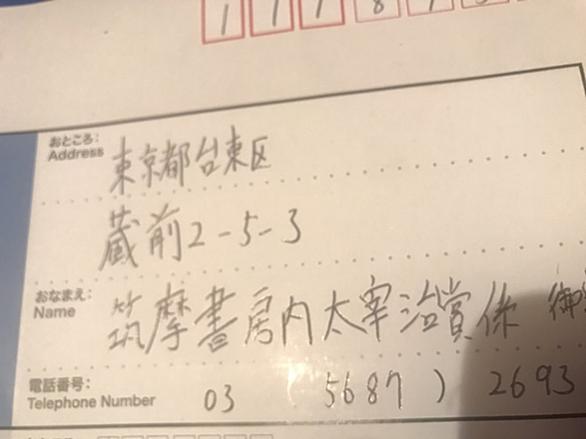 1118755
おところ:
Address
東京都台東区
蔵前2-5-3
おなまえ:
Name
筑摩書房内太宰治賞係 御
電話番号:
Telephone Number 03 5687 ) 2693